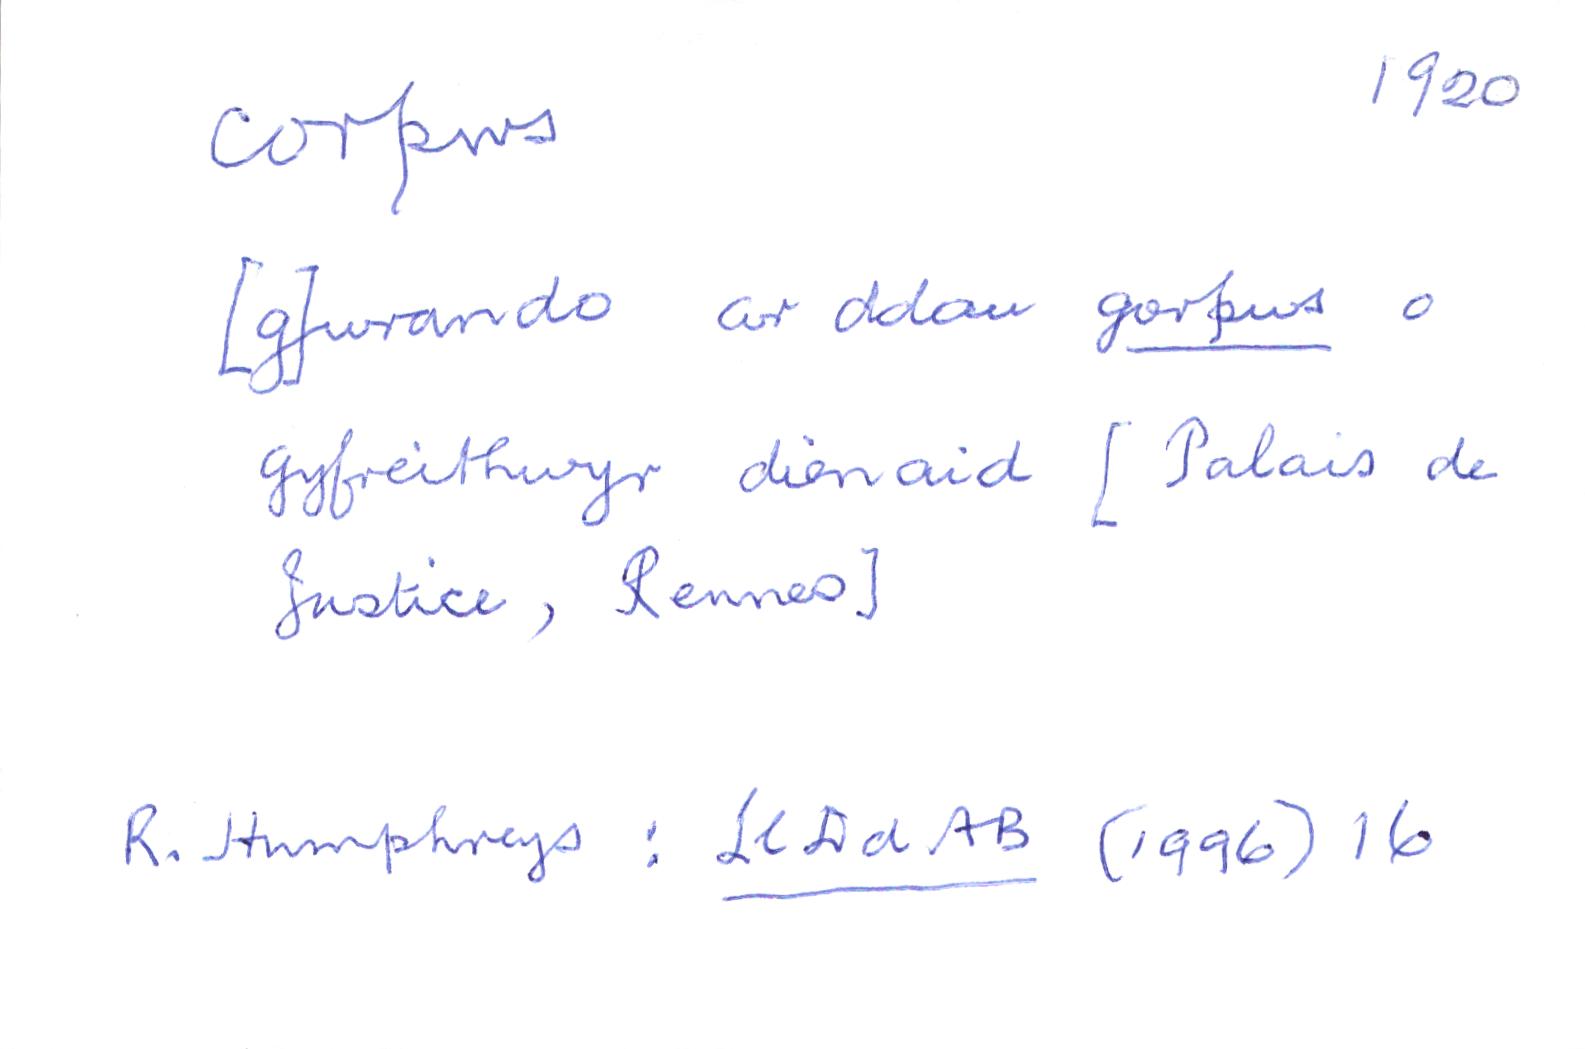 1920
corpws
[g]wrando ar ddau gorpws o
gyfreithwyr dienaid [Palais de
Justice, Rennes]
R. Humphreys : Ll Dd AB (1996) 16